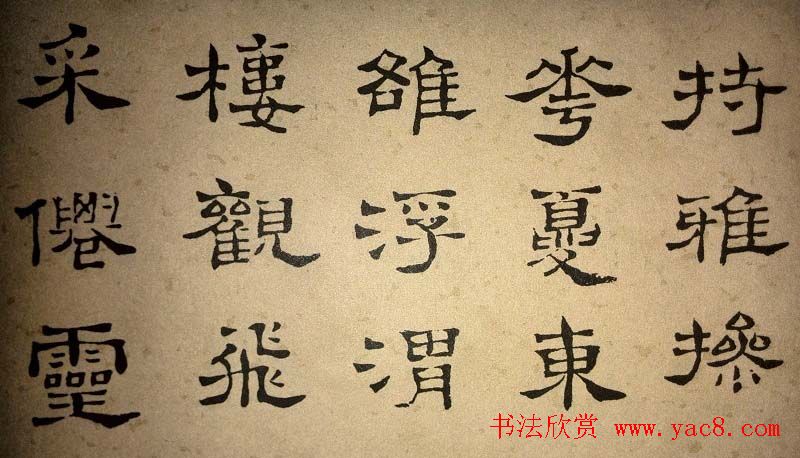 持雅操
華夏東
雒浮渭
樓觀飛
采僊靈
书法欣赏 www.yac8.com